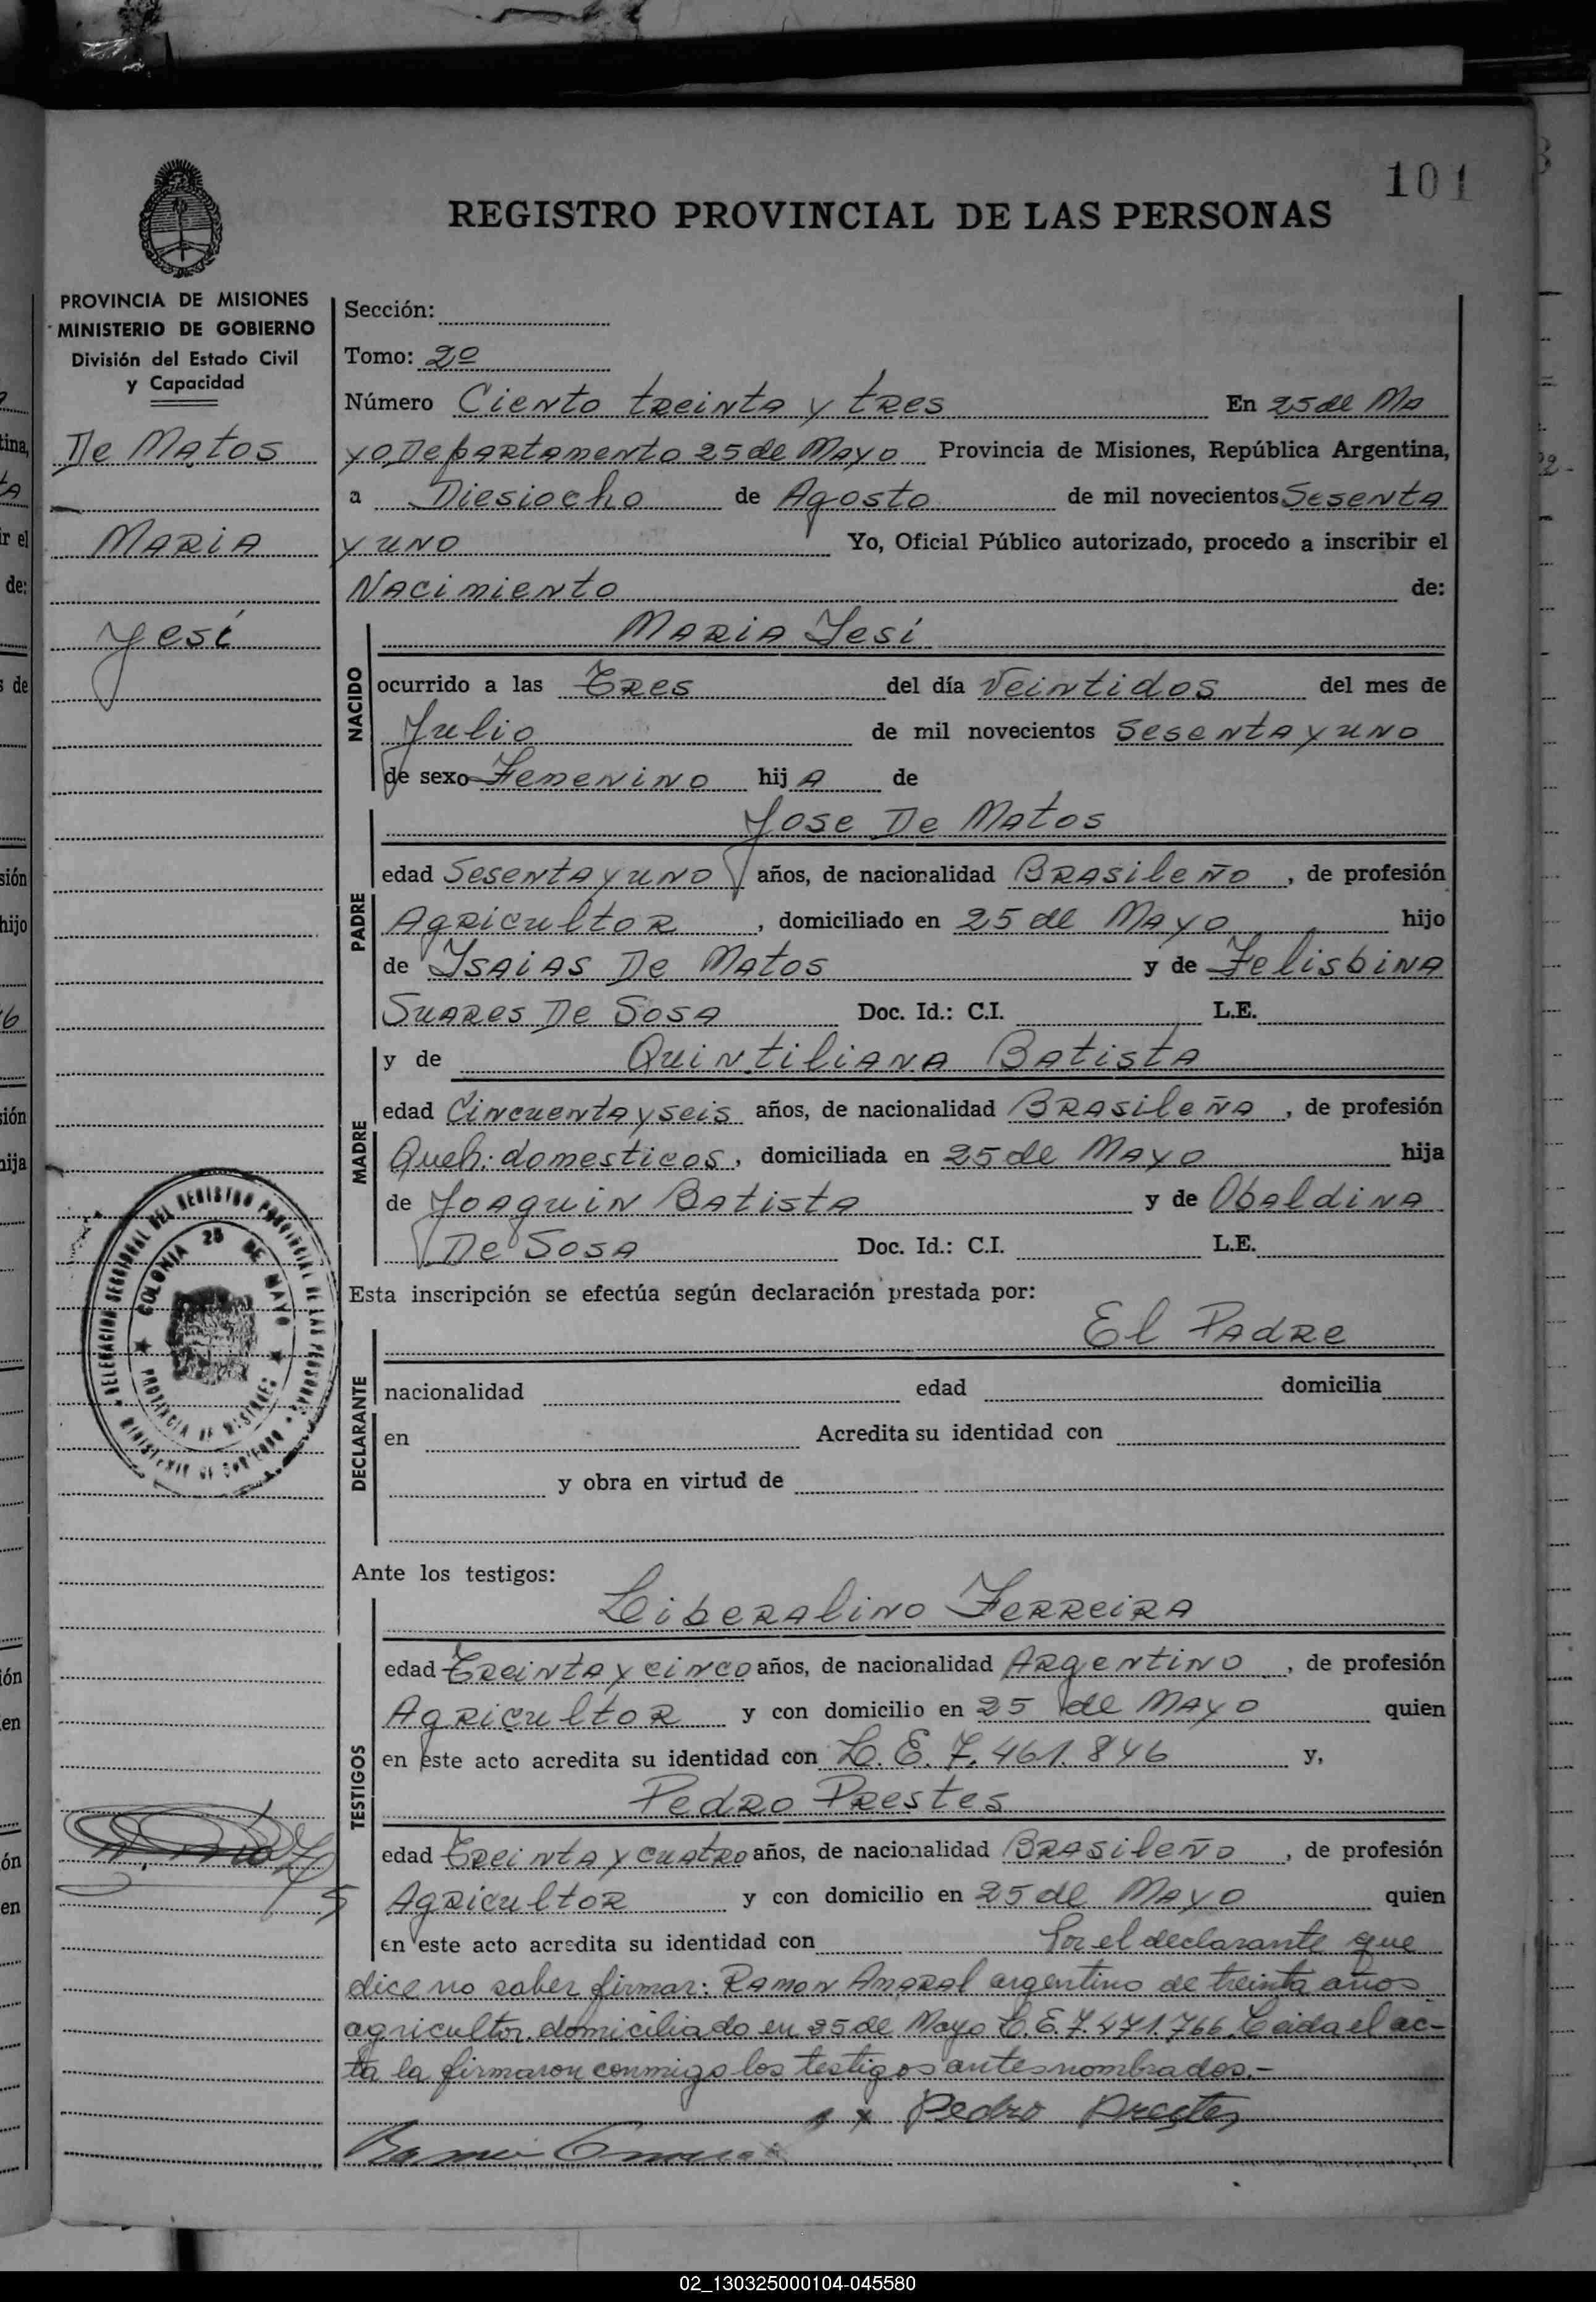 101
REGISTRO PROVINCIAL DE LAS PERSONAS
PROVINCIA DE MISIONES
MINISTERIO DE GOBIERNO
División del Estado Civil
y Capacidad
De Matos
MARIA
Yesi
Sección:
Tomo: 2º
Número Ciento treinta y tres En 25 de Ma
yo Departamento 25 de Mayo Provincia de Misiones, República Argentina,
a Diesiocho de Agosto de mil novecientos Sesenta
y uno Yo, Oficial Público autorizado, procedo a inscribir el
Nacimiento de:
NACIDO
Maria Yesi
ocurrido a las Tres del día Veintidos del mes de
Julio de mil novecientos Sesenta y uno
de sexo Femenino hij A de
PADRE
Jose De Matos
edad Sesenta y uno años, de nacionalidad Brasileño, de profesión
Agricultor, domiciliado en 25 de Mayo hijo
de Isaias De Matos y de Felisbina
Suares De Sosa Doc. Id.: C.I. L.E.
MADRE
y de Quintiliana Batista
edad Cincuenta y seis años, de nacionalidad Brasileña, de profesión
Queh. domesticos, domiciliada en 25 de Mayo hija
de Joaquin Batista y de Obaldina
De Sosa Doc. Id.: C.I. L.E.
Esta inscripción se efectúa según declaración prestada por:
DECLARANTE
El Padre
nacionalidad edad domicilia
en Acredita su identidad con
y obra en virtud de
Ante los testigos:
TESTIGOS
Liberalino Ferreira
edad Treinta y cinco años, de nacionalidad Argentino, de profesión
Agricultor y con domicilio en 25 de Mayo quien
en este acto acredita su identidad con L.E. 7.461.846 y,
Pedro Prestes
edad Treinta y cuatro años, de nacionalidad Brasileño, de profesión
Agricultor y con domicilio en 25 de Mayo quien
en este acto acredita su identidad con Por el declarante que
dice no saber firmar: Ramon Amaral argentino de treinta años
agricultor domiciliado en 25 de Mayo L.E. 7.471.766. Leida el ac-
ta la firmaron conmigo los testigos antes nombrados.-
x Pedro Prestes
DELEGACION SECCIONAL DEL REGISTRO PROVINCIAL DE LAS PERSONAS
MINISTERIO DE GOBIERNO
COLONIA 25 DE MAYO
PROVINCIA DE MISIONES
02_130325000104-045580